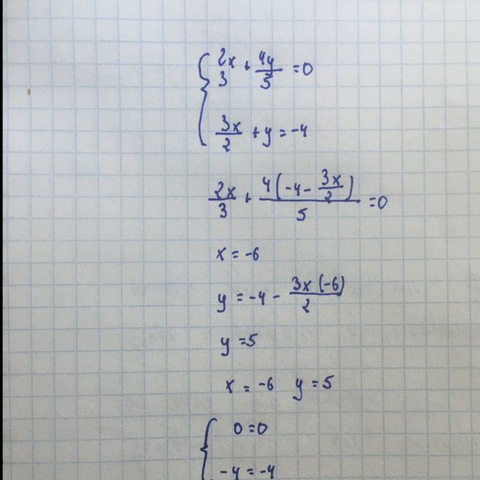 2x/3 + 4y/5 = 0
3x/2 + y = -4
2x/3 + 4(-4 - 3x/2)/5 = 0
x = -6
y = -4 - 3x(-6)/2
y = 5
x = -6 y = 5
0 = 0
-4 = -4